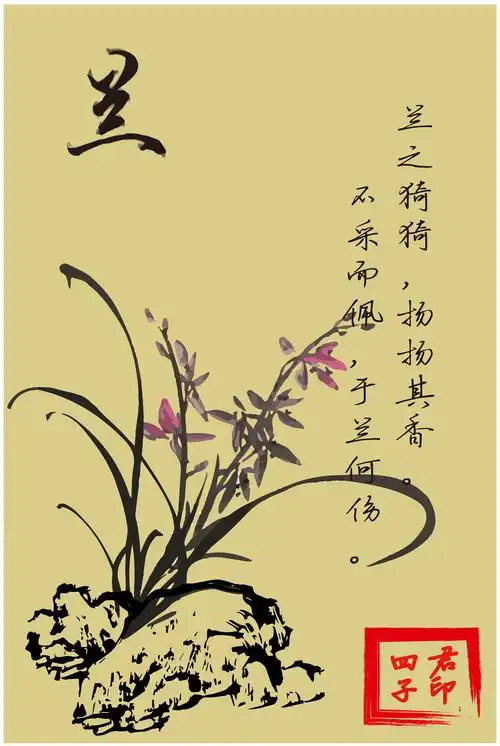 兰
兰之猗猗，扬扬其香。
不采而佩，于兰何伤。
四君
子印